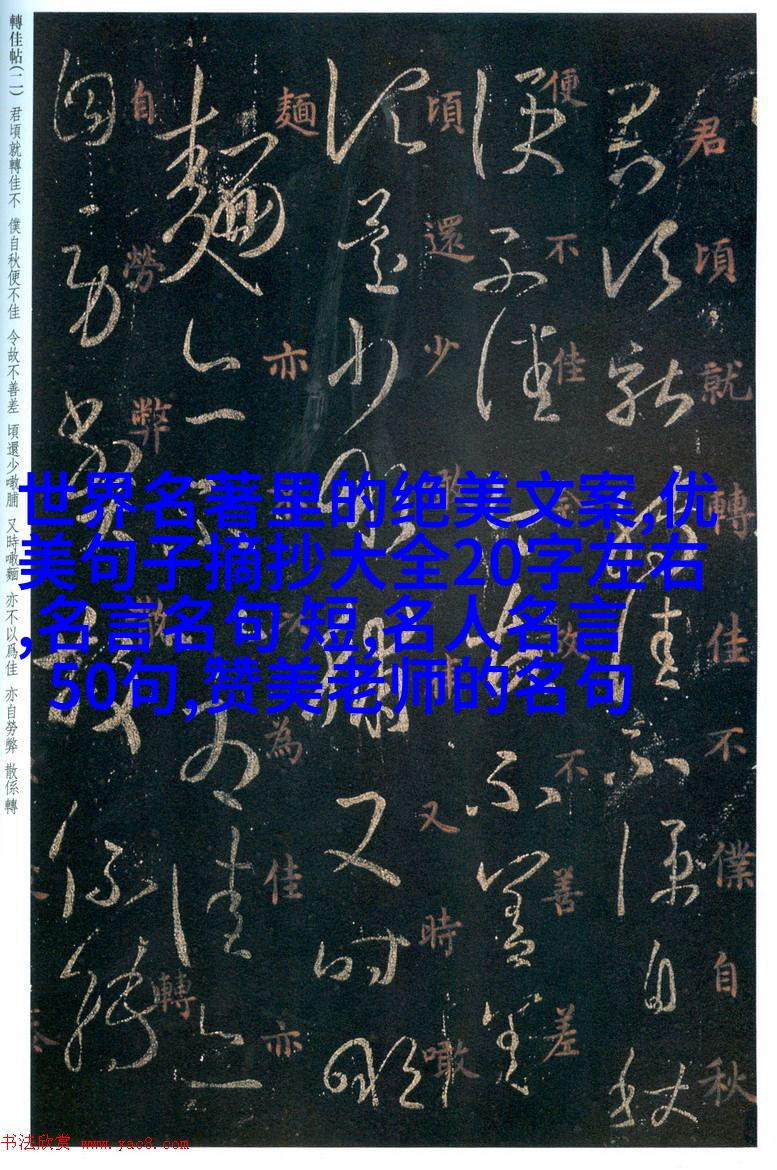 轉佳帖(二) 君頃就轉佳不 僕自秋便不佳 今故不善差 頃還少噉脯 又時噉麵 亦不以爲佳 亦自勞弊 散係轉
君頃就轉佳不僕自秋
便不佳今故不善差
頃還少噉脯又時噉
麵亦不以為佳亦
自勞弊散係轉
世界名著里的绝美文案,优
美句子摘抄大全20字左右
,名言名句 短,名人名言
50句,赞美老师的名句
书法欣赏 www.yac8.com